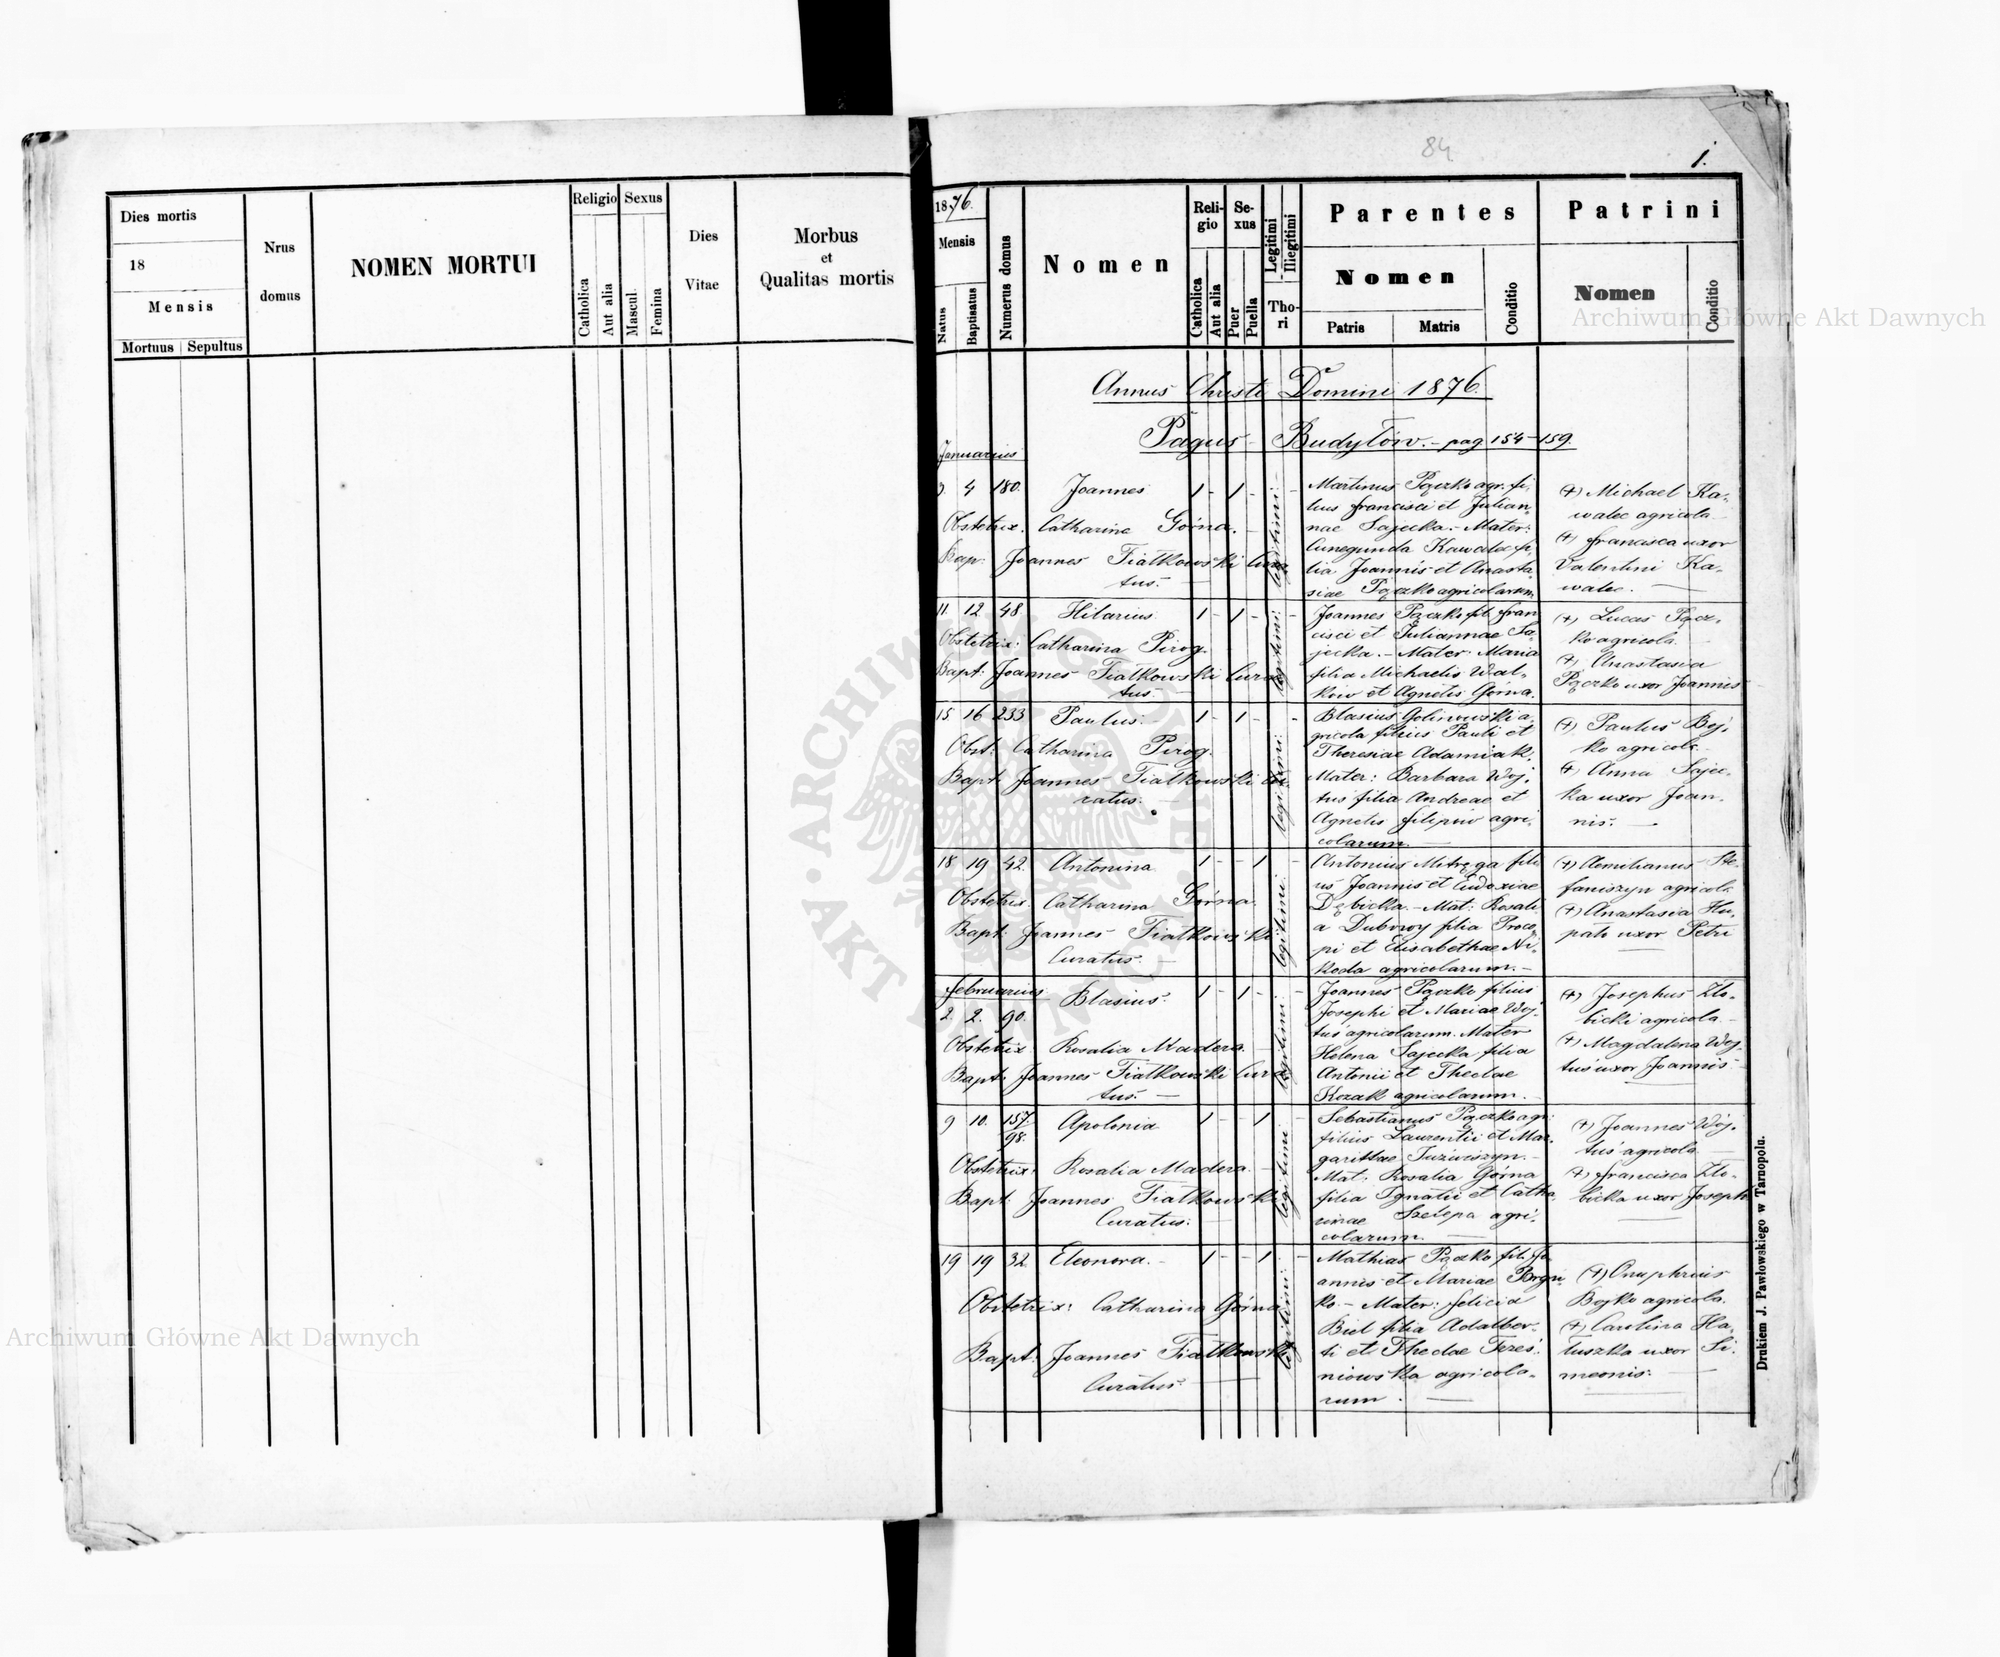 Dies mortis
18
Mensis
Mortuus | Sepultus
Nrus
domus
NOMEN MORTUI
Religio
Catholica
Aut alia
Sexus
Mascul.
Femina
Dies
Vitae
Morbus
et
Qualitas mortis
84
1.
1876.
Mensis
Natus
Baptisatus
Numerus domus
Nomen
Religio
Catholica
Aut alia
Sexus
Puer
Puella
Legitimi
Illegitimi
Thori
Parentes
Nomen
Patris
Matris
Conditio
Patrini
Nomen
Conditio
Annus Christi Domini 1876.
Pagus - Budyłów. - pag 154-159.
Januarius
3. 4 180. Joannes 1 - 1 - -
Obstetrix: Catharina Górna. -
Bap: Joannes Fiałkowski Cura
tus. -
legitimi:
Martinus Pączko agr. fi-
lius Francisci et Julian-
nae Sajecka. - Mater:
Cunegunda Kawalec fi-
lia Joannis et Anasta-
siae Pączko agricolarum
(+) Michael Ka-
walec agricola
(+) Francisca uxor
Valentini Ka-
walec. -
11. 12 48. Hilarius 1 - 1 -
Obstetrix: Catharina Pirog.
Bapt: Joannes Fiałkowski Cura
tus. -
legitimi:
Joannes Pączko fil. Fran
cisci et Juliannae Sa-
jecka. - Mater: Maria
filia Michaelis Wal-
ków et Agnetis Górna.
(+) Lucas Pącz-
ko agricola.
(+) Anastasia
Pączko uxor Joannis
15 16 233 Paulus. - 1 - 1 - -
Obst: Catharina Pirog.
Bapt: Joannes Fiałkowski Cu
ratus. -
legitimi:
Blasius Golinowski a-
gricola filius Pauli et
Theresiae Adamiak.
Mater: Barbara Woj-
tuś filia Andreae et
Agnetis Filipów agri-
colarum. -
(+) Paulus Boj-
ko agricola -
(+) Anna Sajec-
ka uxor Joan-
nis. -
18 19 42. Antonina 1 - - 1 -
Obstetrix: Catharina Górna
Bapt: Joannes Fiałkowski
Curatus. -
legitimi:
Antonius Mitręga fili
us Joannis et Eudoxiae
Dębicka. - Mat: Rosali
a Dubowy filia Proco-
pi et Elisabethae Ni-
koda agricolarum. -
(+) Aemilianus Ste-
faniszyn agricola
(+) Anastasia Hu-
pało uxor Petri
Februarius
2. 2. 90. Blasius. 1 - 1 - -
Obstetrix: Rosalia Madera. -
Bapt: Joannes Fiałkowski Cura
tus. -
legitimi:
Joannes Pączko filius
Josephi et Mariae Woj-
tuś agricolarum. Mater
Helena Sajecka filia
Antonii et Theclae
Kozak agricolarum. -
(+) Josephus Zło-
bicki agricola -
(+) Magdalena Woj-
tuś uxor Joannis -
9 10. 157/98. Apolonia 1 - - 1 -
Obstetrix: Rosalia Madera. -
Bapt: Joannes Fiałkowski
Curatus: -
legitimi:
Sebastianus Pączko agr:
filius Laurentii et Mar-
garithae Juzwiszyn. -
Mat: Rosalia Górna
filia Ignatii et Catha
rinae Szelepa agri-
colarum. -
(+) Joannes Woj-
tuś agricola -
(+) Francisca Zło-
bicka uxor Josephi
19 19 32 Eleonora. - 1 - - 1 -
Obstetrix: Catharina Górna
Bapt: Joannes Fiałkowski
Curatus. -
legitimi:
Mathias Pączko fil. Jo
annis et Mariae
ko. - Mater: Felicia
Biel filia Adalber-
ti et Theclae
niowska agricola-
rum. -
(+) Onuphrius
Bojko agricola.
(+) Carolina Ha-
łuszka uxor Si-
meonis: -
Drukiem J. Pawłowskiego w Tarnopolu.
Archiwum Główne Akt Dawnych
Archiwum Główne Akt Dawnych
ARCHIWUM GŁÓWNE AKT DAWNYCH